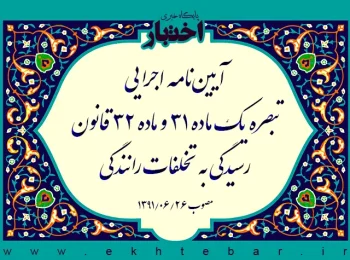 پایگاه خبری
اختبار
آیین‌نامه اجرایی
تبصره یک ماده ۳۱ و ماده ۳۲ قانون
رسیدگی به تخلفات رانندگی
مصوب ۱۳۹۱/۰۶/۲۶
www.ekhtebar.ir